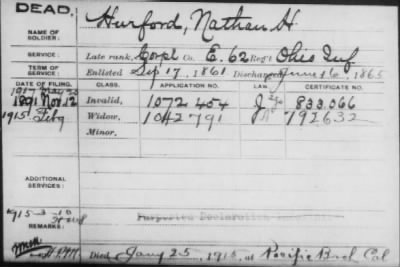 DEAD,
NAME OF SOLDIER: Hurford, Nathan H.
SERVICE: Late rank, Corpl Co. E. 62 Reg't Ohio Inf
TERM OF SERVICE: Enlisted Sep 17, 1861 Discharged June 16, 1865
DATE OF FILING. CLASS. APPLICATION NO. LAW. CERTIFICATE NO.
1891 Nov. 12 Invalid, 1072 454 833.066
1915 Widow, 1042 791 792632
Minor,
ADDITIONAL SERVICES:
1915-3-10
REMARKS:
Died Jany 25, 1915, at Pacific Cal